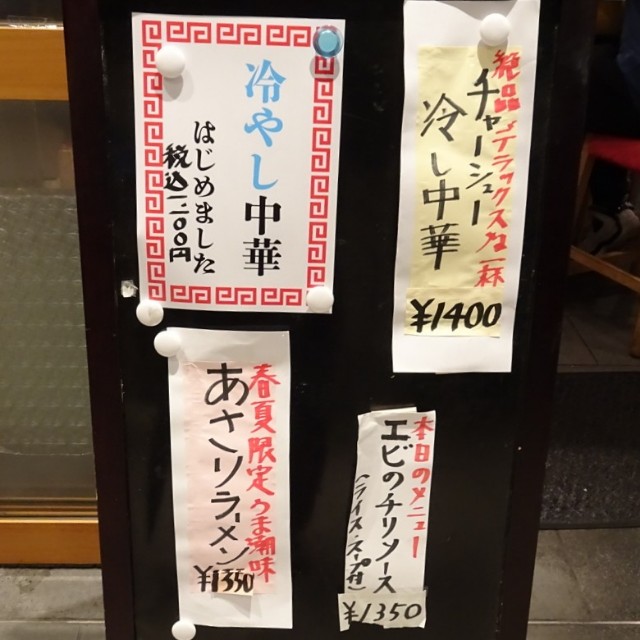 冷やし中華
はじめました
税込一二〇〇円
絶品デラックスな一杯
チャーシュー
冷し中華
¥1400
春夏限定うま潮味
あさりラーメン
¥1350
本日のメニュー
エビのチリソース
(ライス・スープ付)
¥1350